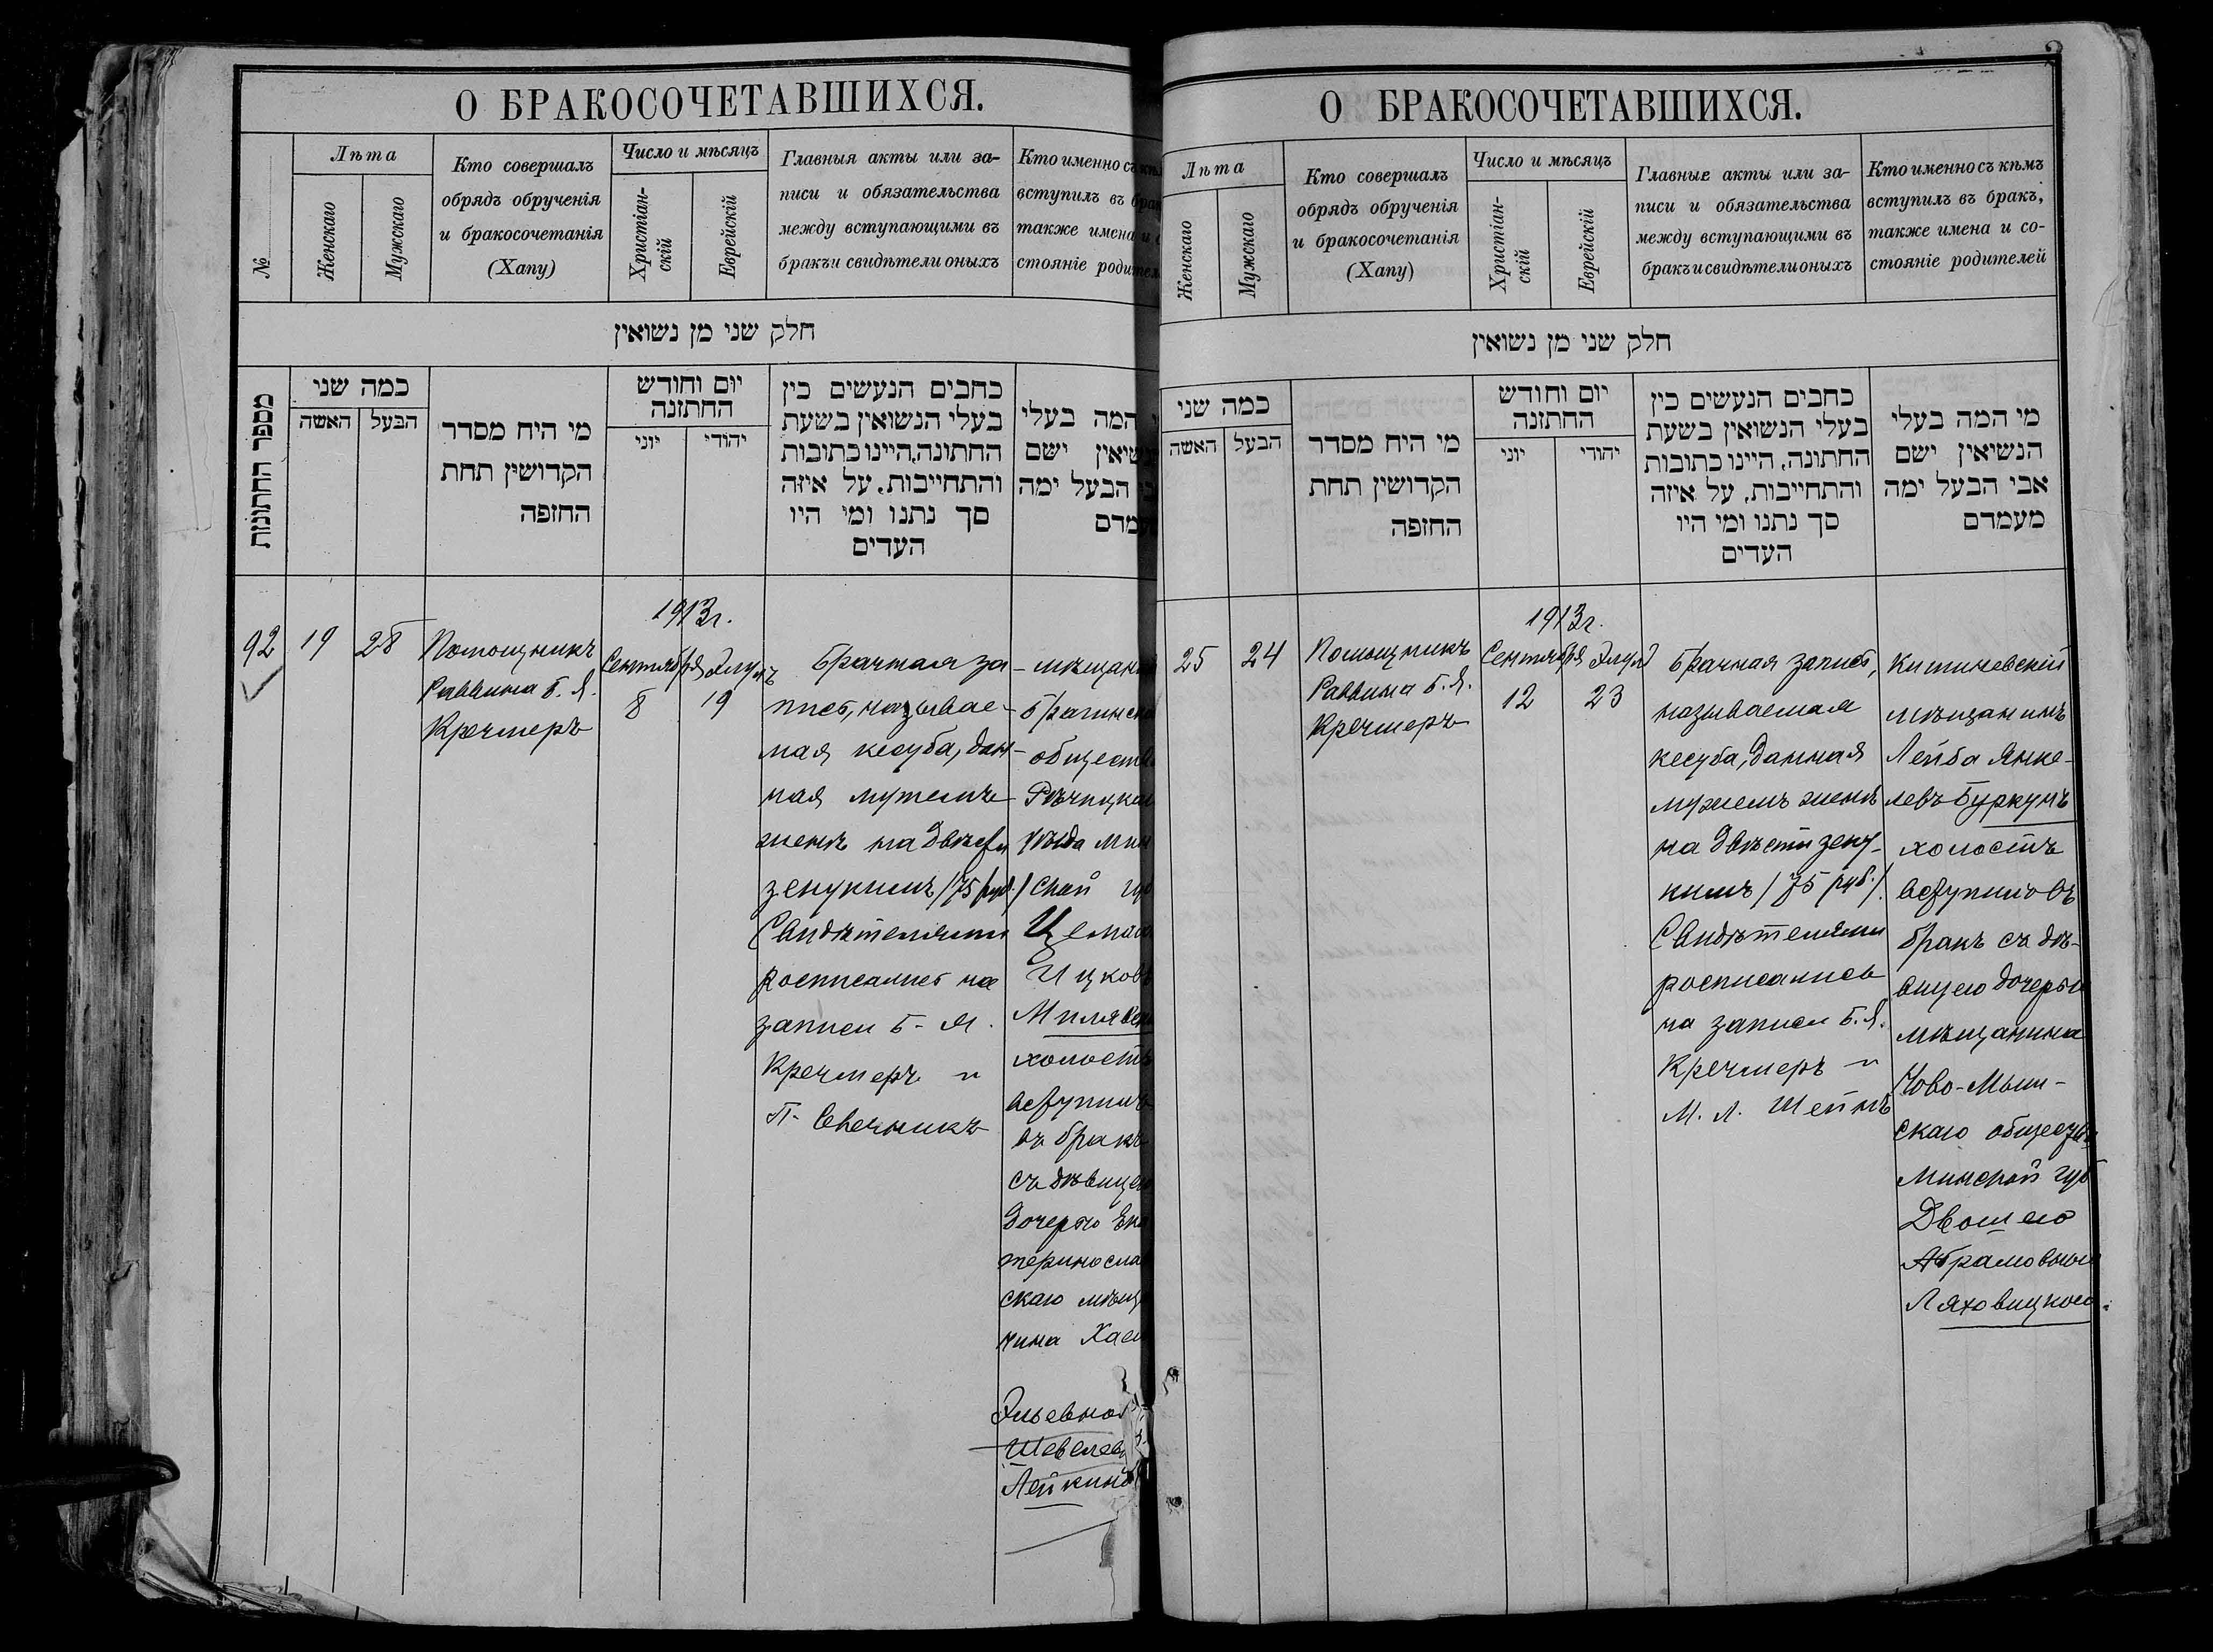 О БРАКОСОЧЕТАВШИХСЯ.
№
Лѣта
Женскаго
Мужскаго
Кто совершалъ
обрядъ обрученія
и бракосочетанія
(Хапу)
Число и мѣсяцъ
Христіан-
скій
Еврейскій
Главныя акты или за-
писи и обязательства
между вступающими въ
бракъ и свидѣтели оныхъ
Кто именно съ
вступилъ въ
также имена и
стояніе
חלק שני מן נשואין
מספר החתונות
כמה שני
האשה
הבעל
מי היח מסדר
הקדושין תחת
החזפה
יום וחודש
החתזנה
יוני
יהודי
כחבים הנעשים כין
בעלי הנשואין בשעת
החתונה, היינו כתובות
והתחייבות. על איזה
סך נתנו ומי היו
העדים
המה בעלי
ישם
הבעל ימה
92
19
28
Помощникъ
Раввина Б. Я.
Кречмеръ
1913г.
Сентября
8
Элулъ
19
Брачная за-
пись, называе-
мая кесуба, дан-
ная мужемъ
женѣ на двѣсти
зекукимъ /75 руб./
Свидѣтелями
росписались на
записи Б. Я.
Кречмеръ и
П. Свечникъ
Брагинска
обществ
Рѣчицкаго
уѣзда Мин
ской губ
Ицковъ
холостъ
вступилъ
въ бракъ
съ дѣвицею
дочерью Ека
теринослав
скаго мѣща
нина
О БРАКОСОЧЕТАВШИХСЯ.
Лѣта
Женскаго
Мужскаго
Кто совершалъ
обрядъ обрученія
и бракосочетанія
(Хапу)
Число и мѣсяцъ
Христіан-
скій
Еврейскій
Главные акты или за-
писи и обязательства
между вступающими въ
бракъ и свидѣтели оныхъ
Кто именно съ кѣмъ
вступилъ въ бракъ,
также имена и со-
стояніе родителей
חלק שני מן נשואין
כמה שני
האשה
הבעל
מי היח מסדר
הקדושין תחת
החזפה
יום וחודש
החתזנה
יוני
יהודי
כחבים הנעשים כין
בעלי הנשואין בשעת
החתונה, היינו כתובות
והתחייבות, על איזה
סך נתנו ומי היו
העדים
מי המה בעלי
הנשיאין ישם
אבי הבעל ימה
מעמדם
25
24
Помощникъ
Раввина Б. Я.
Кречмеръ
1913г.
Сентября
12
Элула
23
Брачная запись,
называемая
кесуба, данная
мужемъ женѣ
на двѣсти зеку-
кимъ /75 руб./.
Свидѣтелями
росписались
на записи Б. Я.
Кречмеръ и
М. Л. Шейнъ
Кишиневскій
мѣщанинъ
Лейба Янке-
левъ Буркунъ
холостъ
вступилъ въ
бракъ съ дѣ-
вицею дочерью
мѣщанина
Ново-Мыш-
скаго общества
Минской губ
Двошею
Абрамовною
Ляховицкою.